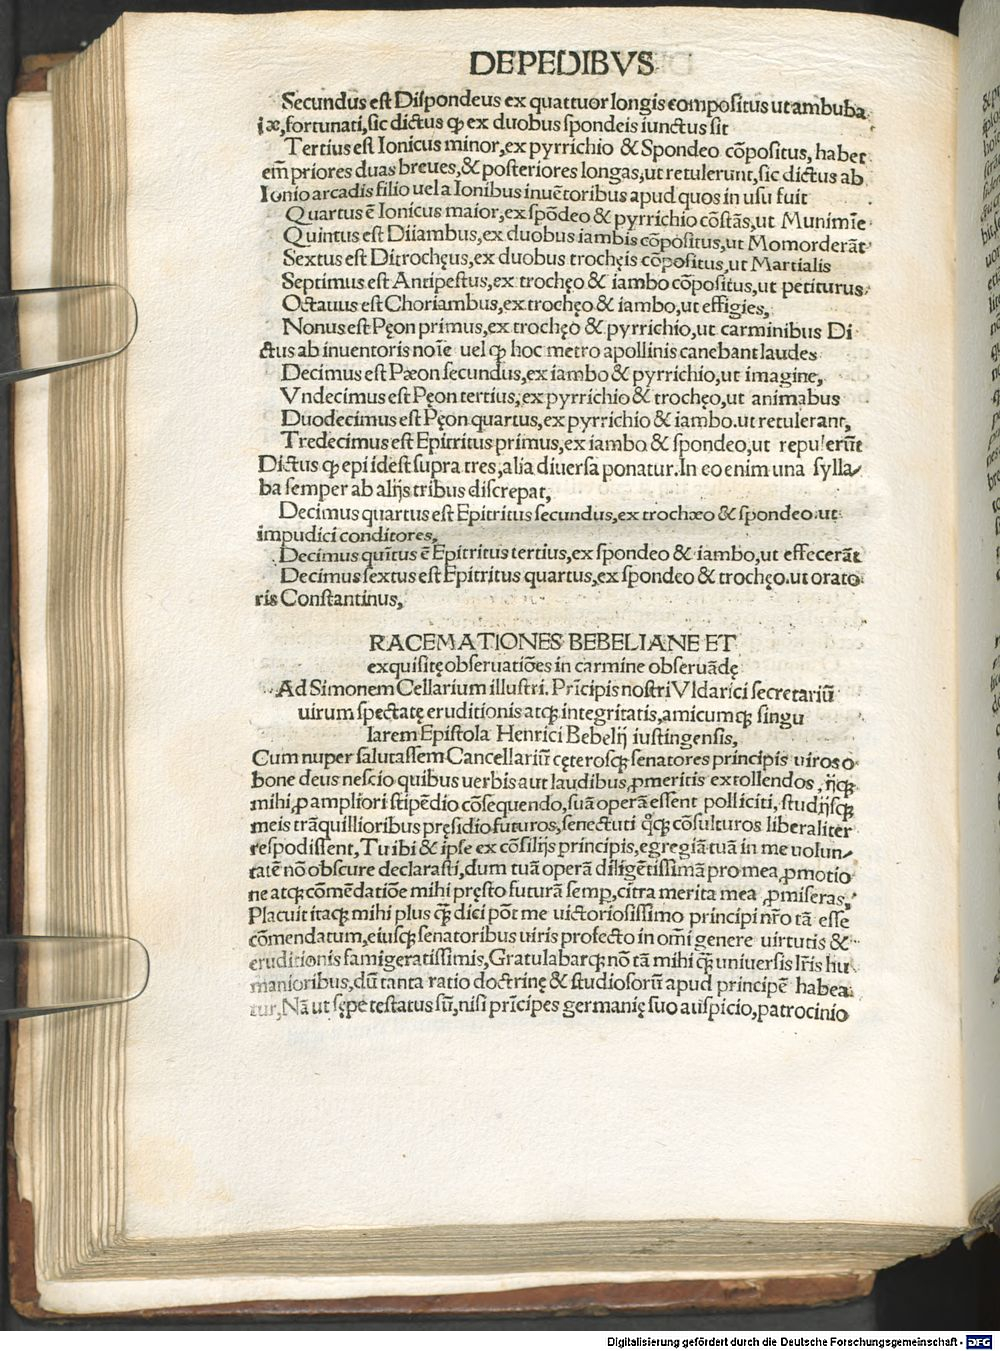 DEPEDIBVS
Secundus est Dispondeus ex quattuor longis compositus ut ambuba
iæ, fortunati, sic dictus ꝙ ex duobus spondeis iunctus sit
Tertius est Ionicus minor, ex pyrrichio & Spondeo cõpositus, habet
em̃ priores duas breues, & posteriores longas, ut retulerunt, sic dictus ab
Ionio arcadis filio uel a Ionibus inuẽtoribus apud quos in usu fuit
Quartus ẽ Ionicus maior, ex spõdeo & pyrrichio cõstãs, ut Munimĩe
Quintus est Diiambus, ex duobus iambis cõpositus, ut Momorderãt
Sextus est Ditrochęus, ex duobus trochęis cõpositus, ut Martialis
Septimus est Antipestus, ex trochęo & iambo cõpositus, ut petiturus
Octauus est Choriambus, ex trochęo & iambo, ut effigies,
Nonus est Pęon primus, ex trochęo & pyrrichio, ut carminibus Di
ctus ab inuentoris noĩe uel ꝙ hoc metro apollinis canebant laudes
Decimus est Pæon secundus, ex iambo & pyrrichio, ut imagine,
Vndecimus est Pęon tertius, ex pyrrichio & trochęo, ut animabus
Duodecimus est Pęon quartus, ex pyrrichio & iambo. ut retulerant,
Tredecimus est Epitritus primus, ex iambo & spondeo, ut repulerũt
Dictus ꝙ epi idest supra tres, alia diuersa ponatur. In eo enim una sylla/
ba semper ab alijs tribus discrepat,
Decimus quartus est Epitritus secundus, ex trochæo & spondeo. ut
impudici conditores,
Decimus quĩtus ẽ Epitritus tertius, ex spondeo & iambo, ut effecerãt
Decimus sextus est Epitritus quartus, ex spondeo & trochęo. ut orato
ris Constantinus,
RACEMATIONES BEBELIANE ET
exquisitę obseruatiões in carmine obseruãdę
Ad Simonem Cellarium illustri. Prĩcipis nostri Vldarici secretariũ
uirum spectatę eruditionis atqꝫ integritatis, amicumqꝫ singu
larem Epistola Henrici Bebelij iustingensis,
Cum nuper salutassem Cancellariũ cęterosqꝫ senatores principis uiros o
bone deus nescio quibus uerbis aut laudibus, ꝓ meritis extollendos, ijqꝫ
mihi, ꝓ ampliori stipẽdio cõsequendo, suã operã essent polliciti, studijsqꝫ
meis trãquillioribus pręsidio futuros, senectuti qͦqꝫ cõsulturos liberaliter
respodissent, Tu ibi & ipse ex cõsilijs principis, egregiã tuã in me uolun/
tatẽ nõ obscure declarasti, dum tuã operã diligẽtissimã pro mea, ꝓmotio
ne atqꝫ cõmẽdatiõe mihi pręsto futurã semp̱, citra merita mea ꝓmiseras,
Placuit itaqꝫ mihi plus qꝫ̃ dici põt me uictoriosissimo principi nr̃o tã esse
cõmendatum, eiusqꝫ senatoribus uiris profecto in om̃i genere uirtutis &
eruditionis famigeratissimis, Gratulabarqꝫ nõ tã mihi qꝫ̃ uniuersis lr̃is hu
manioribus, dũ tanta ratio doctrinę & studiosorũ apud principẽ habea
tur, Nã ut sępe testatus sũ, nisi prĩcipes germanię suo auspicio, patrocinio
Digitalisierung gefördert durch die Deutsche Forschungsgemeinschaft - DFG